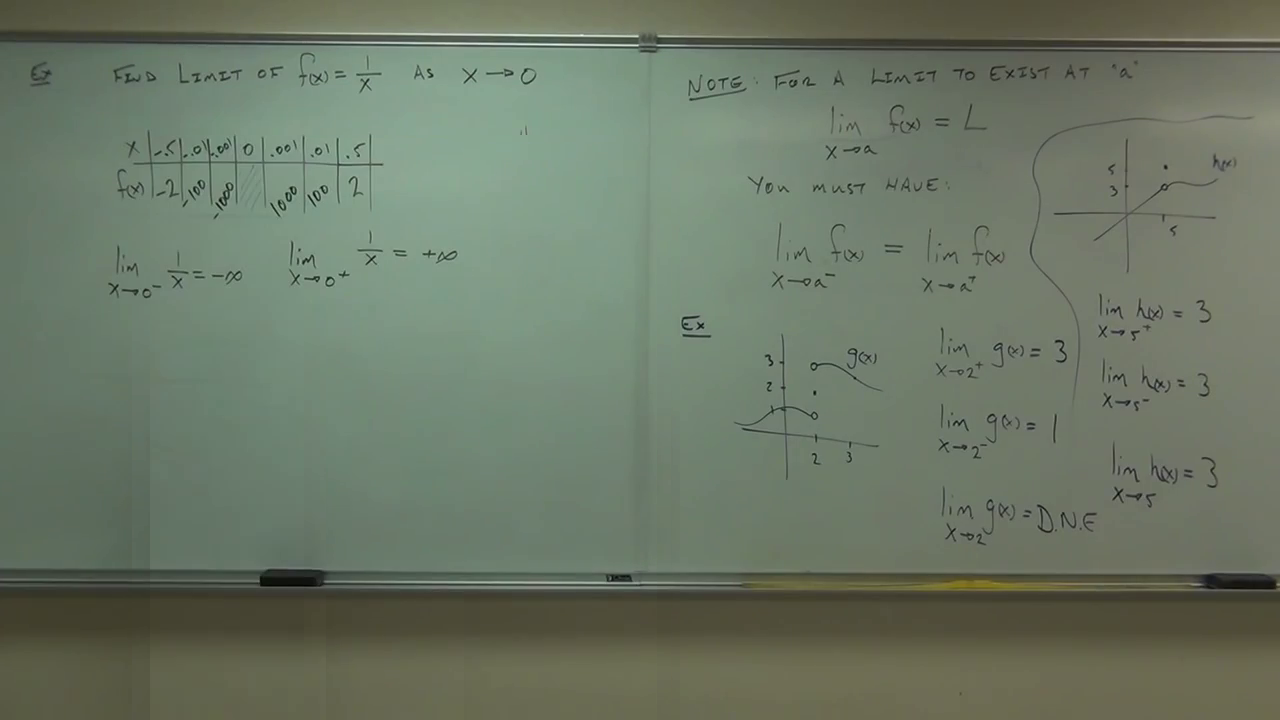 Ex FIND LIMIT OF f(x) = 1/x AS x → 0
x | -.5 | -.01 | -.001 | 0 | .001 | .01 | .5
f(x) | -2 | -100 | -1000 | | 1000 | 100 | 2
lim x→0⁻ 1/x = -∞ lim x→0⁺ 1/x = +∞
NOTE: FOR A LIMIT TO EXIST AT "a"
lim x→a f(x) = L
YOU MUST HAVE:
lim x→a⁻ f(x) = lim x→a⁺ f(x)
Ex
3
2
1
g(x)
2 3
lim x→2⁺ g(x) = 3
lim x→2⁻ g(x) = 1
lim x→2 g(x) = D.N.E
5
3
h(x)
5
lim x→5⁺ h(x) = 3
lim x→5⁻ h(x) = 3
lim x→5 h(x) = 3